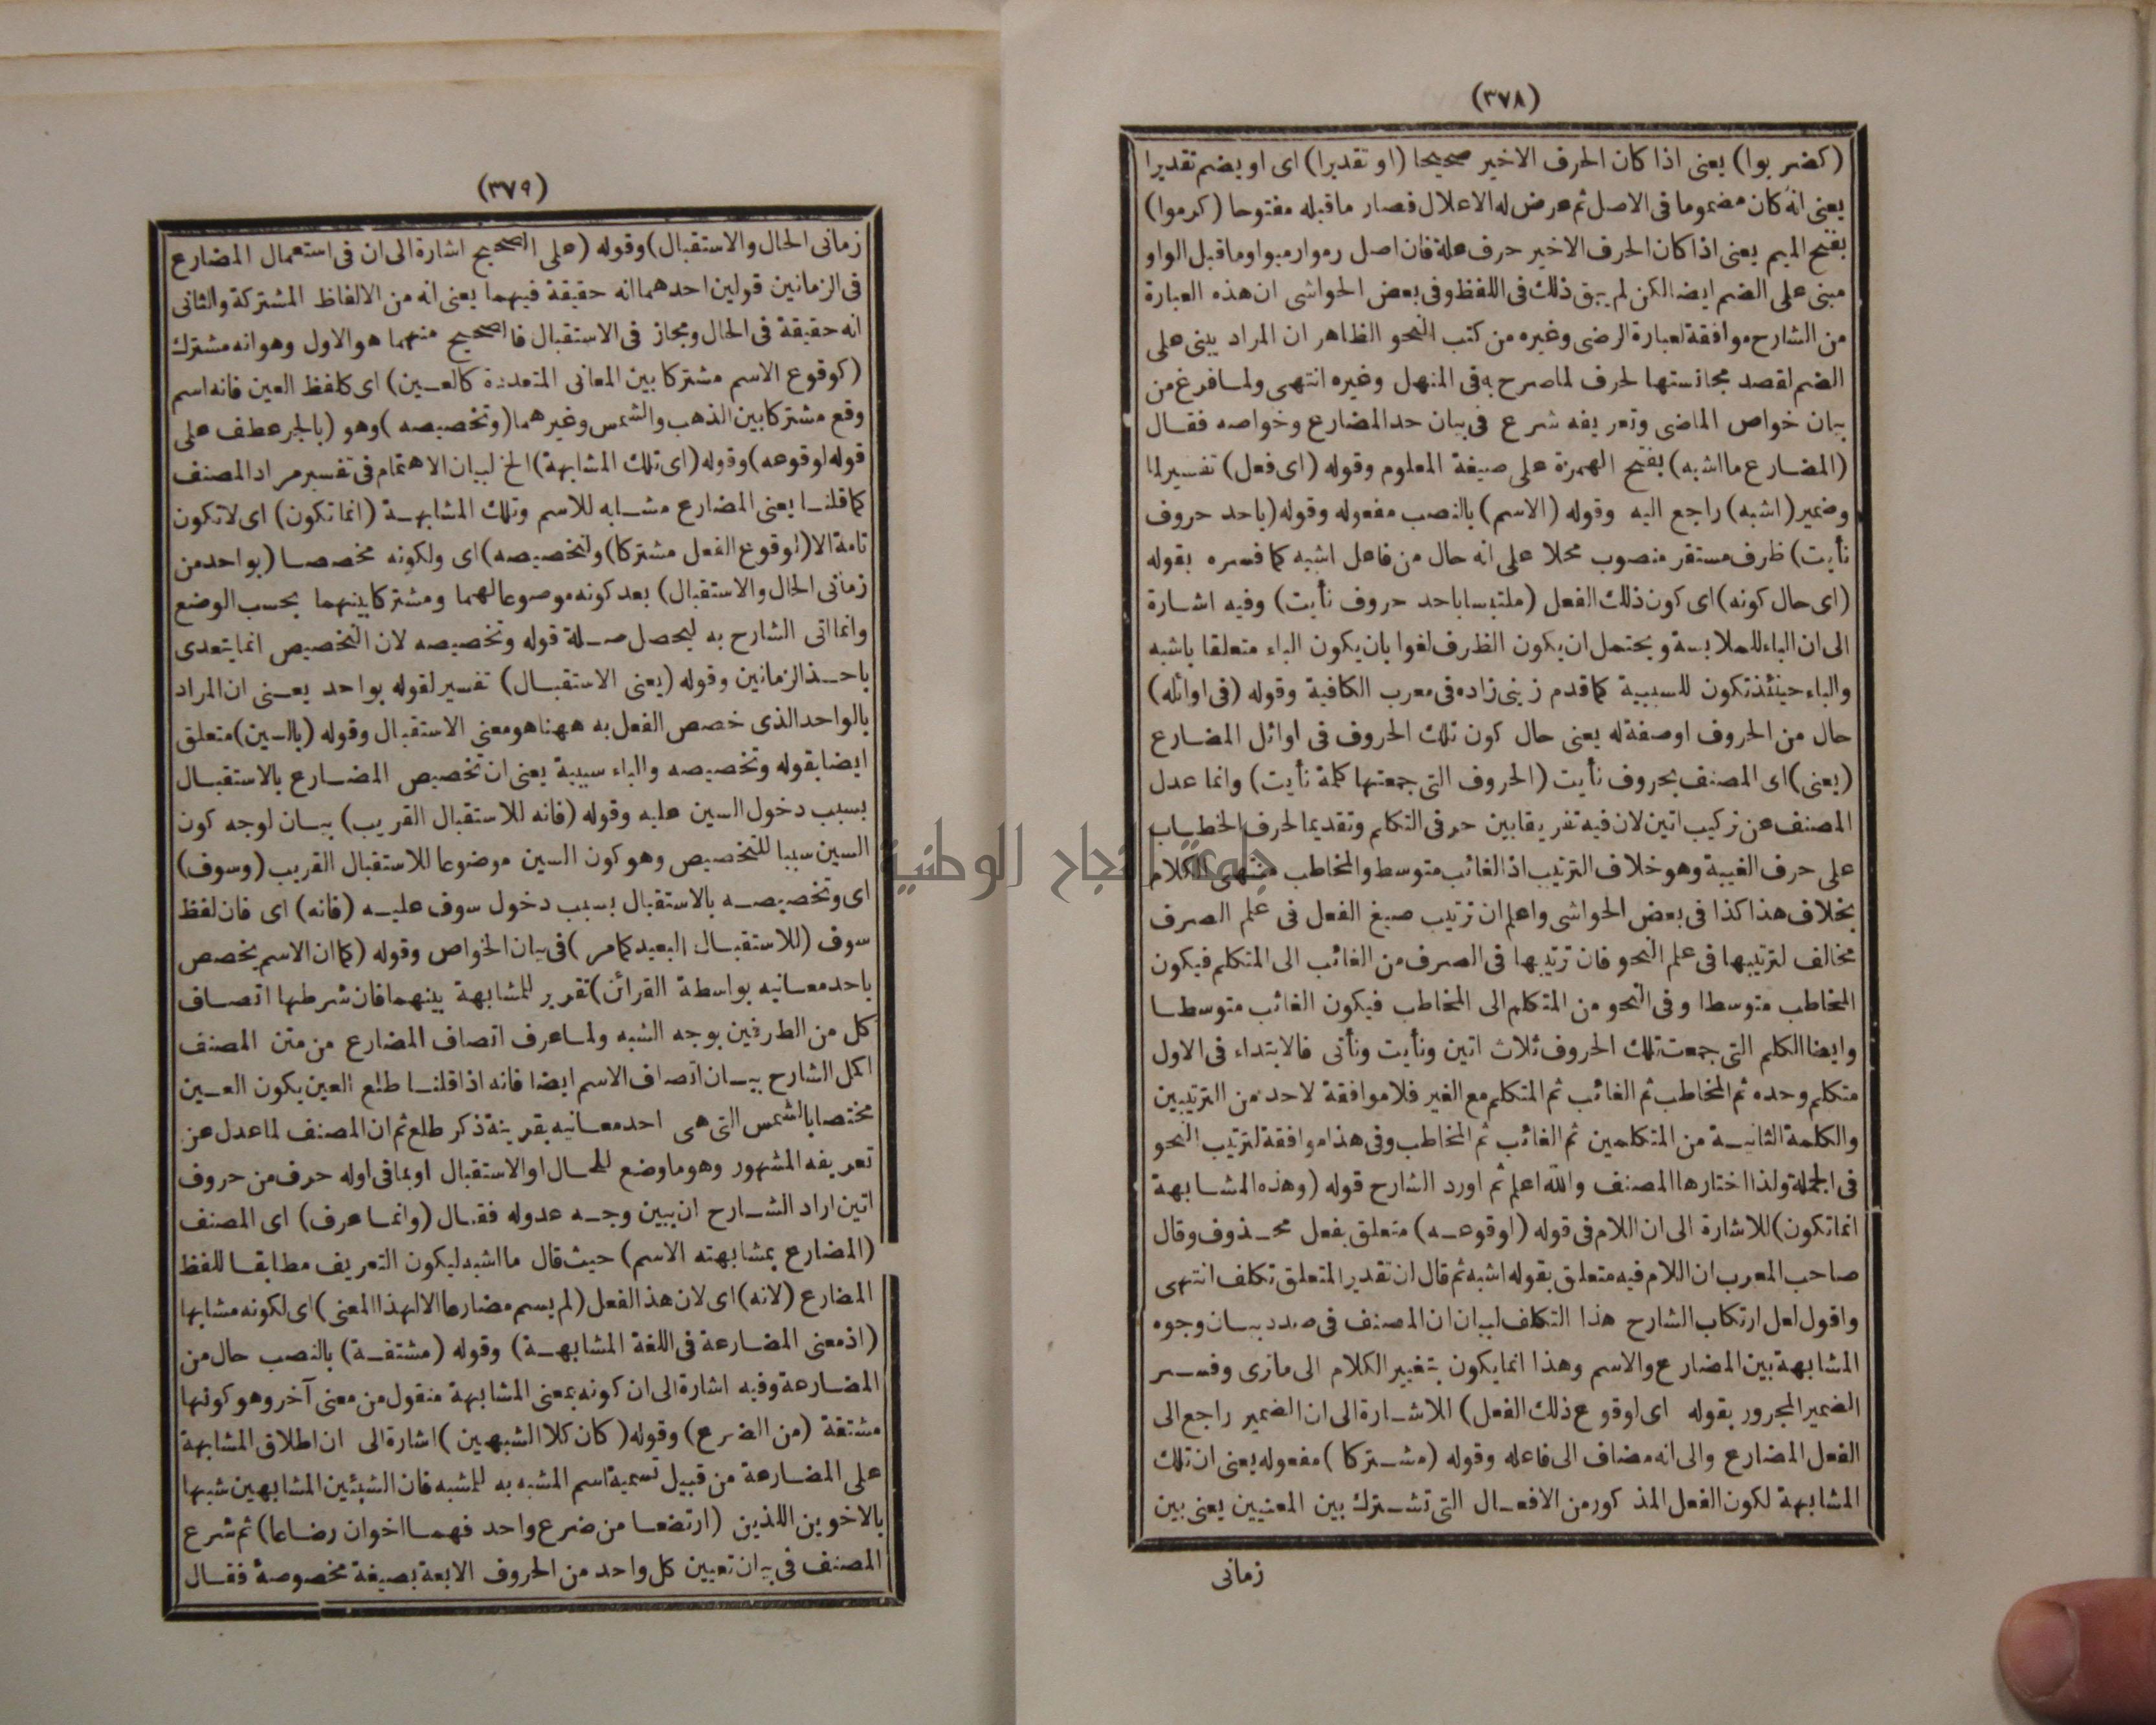 (٣٧٨)
(كضربوا) يعنى اذا كان الحرف الاخير صحيحا (او تقديرا) اى او يضم تقديرا
يعنى انه كان مضموما فى الاصل ثم عرض له الاعلال فصار ماقبله مفتوحا (كرموا)
بفتح الميم يعنى اذا كان الحرف الاخير حرف علة فان اصل رموا رميوا وما قبل الواو
مبنى على الضم ايضا لكن لم يبق ذلك فى اللفظ وفى بعض الحواشى ان هذه العبارة
من الشارح موافقة لعبارة الرضى وغيره من كتب النحو الظاهر ان المراد يبنى على
الضم لقصد مجانستها لحرف لما صرح به فى المنهل وغيره انتهى ولما فرغ من
بيان خواص الماضى وتعريفه شرع فى بيان حد المضارع وخواصه فقال
(المضارع ما اشبه) بفتح الهمزة على صيغة المعلوم وقوله (اى فعل) تفسير لما
وضمير (اشبه) راجع اليه وقوله (الاسم) بالنصب مفعوله وقوله (باحد حروف
نأيت) ظرف مستقر منصوب محلا على انه حال من فاعل اشبه كما فسره بقوله
(اى حال كونه) اى كون ذلك الفعل (ملتبسا باحد حروف نأيت) وفيه اشارة
الى ان الباء للملابسة ويحتمل ان يكون الظرف لغوا بان يكون الباء متعلقا باشبه
والباء حينئذ تكون للسببية كما قدم زينى زاده فى معرب الكافية وقوله (فى اوائله)
حال من الحروف او صفة له يعنى حال كون تلك الحروف فى اوائل المضارع
(يعنى) اى المصنف بحروف نأيت (الحروف التى جمعتها كلمة نأيت) وانما عدل
المصنف عن تركيب اتين لان فيه تفريقا بين حرفى التكلم وتقديما لحرف الخطاب
على حرف الغيبة وهو خلاف الترتيب اذ الغائب متوسط والمخاطب منتهى الكلام
بخلاف هذا كذا فى بعض الحواشى واعلم ان ترتيب صيغ الفعل فى علم الصرف
مخالف لترتيبها فى علم النحو فان ترتيبها فى الصرف من الغائب الى المتكلم فيكون
المخاطب متوسطا وفى النحو من المتكلم الى المخاطب فيكون الغائب متوسطا
وايضا الكلم التى جمعت تلك الحروف ثلاث اتين ونأيت ونأتى فالابتداء فى الاول
متكلم وحده ثم المخاطب ثم الغائب ثم المتكلم مع الغير فلا موافقة لاحد من الترتيبين
والكلمة الثانية من المتكلمين ثم الغائب ثم المخاطب وفى هذا موافقة لترتيب النحو
فى الجملة ولذا اختارها المصنف والله اعلم ثم اورد الشارح قوله (وهذه المشابهة
انما تكون) للاشارة الى ان اللام فى قوله (لوقوعه) متعلق بفعل محذوف وقال
صاحب المعرب ان اللام فيه متعلق بقوله اشبه ثم قال ان تقدير المتعلق تكلف انتهى
واقول لعل ارتكاب الشارح هذا التكلف لبيان ان المصنف فى صدد بيان وجوه
المشابهة بين المضارع والاسم وهذا انما يكون بتغيير الكلام الى ماترى وفسر
الضمير المجرور بقوله اى لوقوع ذلك الفعل) للاشارة الى ان الضمير راجع الى
الفعل المضارع والى انه مضاف الى فاعله وقوله (مشتركا) مفعوله يعنى ان تلك
المشابهة لكون الفعل المذكور من الافعال التى تشترك بين المعنيين يعنى بين
زمانى
(٣٧٩)
زمانى الحال والاستقبال) وقوله (على الصحيح اشارة الى ان فى استعمال المضارع
فى الزمانين قولين احدهما انه حقيقة فيهما يعنى انه من الالفاظ المشتركة والثانى
انه حقيقة فى الحال ومجاز فى الاستقبال فالصحيح منهما هو الاول وهو انه مشترك
(كوقوع الاسم مشتركا بين المعانى المتعددة كالعين) اى كلفظ العين فانه اسم
وقع مشتركا بين الذهب والشمس وغيرهما (وتخصيصه) وهو (بالجر عطف على
قوله لوقوعه) وقوله (اى تلك المشابهة) الخ لبيان الاهتمام فى تفسير مراد المصنف
كما قلنا يعنى المضارع مشابه للاسم وتلك المشابهة (انما تكون) اى لاتكون
تامة الا (لوقوع الفعل مشتركا) ولتخصيصه) اى ولكونه مخصصا (بواحد من
زمانى الحال والاستقبال) بعد كونه موضوعا لهما ومشتركا بينهما بحسب الوضع
وانما اتى الشارح به ليحصل صلة قوله وتخصيصه لان التخصيص انما يتعدى
باحد الزمانين وقوله (يعنى الاستقبال) تفسير لقوله بواحد يعنى ان المراد
بالواحد الذى خصص الفعل به ههنا هو معنى الاستقبال وقوله (بالسين) متعلق
ايضا بقوله وتخصيصه والباء سببية يعنى ان تخصيص المضارع بالاستقبال
بسبب دخول السين عليه وقوله (فانه للاستقبال القريب) بيان لوجه كون
السين سببا للتخصيص وهو كون السين موضوعا للاستقبال القريب (وسوف)
اى وتخصيصه بالاستقبال بسبب دخول سوف عليه (فانه) اى فان لفظ
سوف (للاستقبال البعيد كما مر) فى بيان الخواص وقوله (كما ان الاسم يخصص
باحد معانيه بواسطة القرائن) تقرير للمشابهة بينهما فان شرطها اتصاف
كل من الطرفين بوجه الشبه ولما عرف اتصاف المضارع من متن المصنف
اكمل الشارح بيان اتصاف الاسم ايضا فانه اذا قلنا طلع العين يكون العين
مختصا بالشمس التى هى احد معانيه بقرينة ذكر طلع ثم ان المصنف لما عدل عن
تعريفه المشهور وهو ماوضع للحال او الاستقبال او بما فى اوله حرف من حروف
اتين اراد الشارح ان يبين وجه عدوله فقال (وانما عرف) اى المصنف
(المضارع بمشابهته الاسم) حيث قال ما اشبه ليكون التعريف مطابقا للفظ
المضارع (لانه) اى لان هذ الفعل (لم يسم مضارعا الا لهذا المعنى) اى لكونه مشابها
(اذ معنى المضارعة فى اللغة المشابهة) وقوله (مشتقة) بالنصب حال من
المضارعة وفيه اشارة الى ان كونه بمعنى المشابهة منقول من معنى آخر وهو كونها
مشتقة (من الضرع) وقوله (كان كلا الشبهين) اشارة الى ان اطلاق المشابهة
على المضارعة من قبيل تسمية اسم المشبه به للمشبه فان الشيئين المشابهين شبها
بالاخوين اللذين (ارتضعا من ضرع واحد فهما اخوان رضاعا) ثم شرع
المصنف فى بيان تعيين كل واحد من الحروف الابعة بصيغة مخصوصة فقال
جامعة النجاح الوطنية